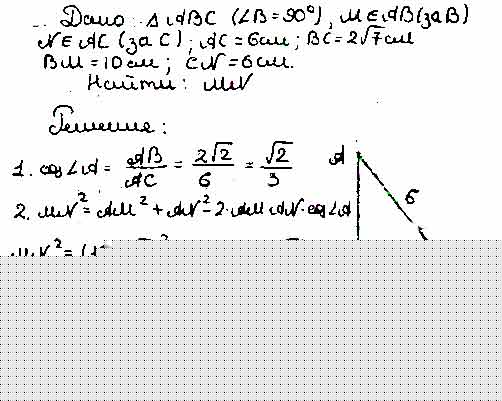 Дано: Δ ABC (∠B = 90°), M ∈ AB (за B)
N ∈ AC (за C); AC = 6 см; BC = 2√7 см
BM = 10 см; CN = 6 см.
Найти: MN
Решение:
1. cos∠A = AB/AC = 2√2/6 = √2/3
2. MN² = AM² + AN² - 2·AM·AN·cos∠A
A
6
MN² =